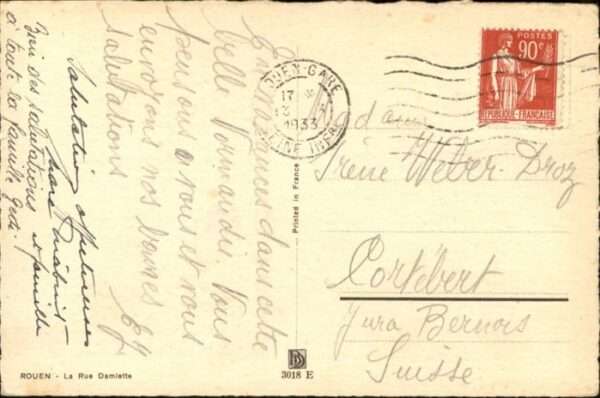 En vacances dans cette
belle Normandie. Vous
pensons a vous et vous
envoyons nos bonnes
salutations
Salutations affectueuses
Bien des salutations et famille
à toute la famille
ROUEN - La Rue Damiette
Printed in France
3018 E
ROUEN-GARE
17
13
1933
SEINE INFRE
POSTES
90c
REPUBLIQUE FRANCAISE
Madame
Irène Weber-Droz
Cortébert
Jura Bernois
Suisse